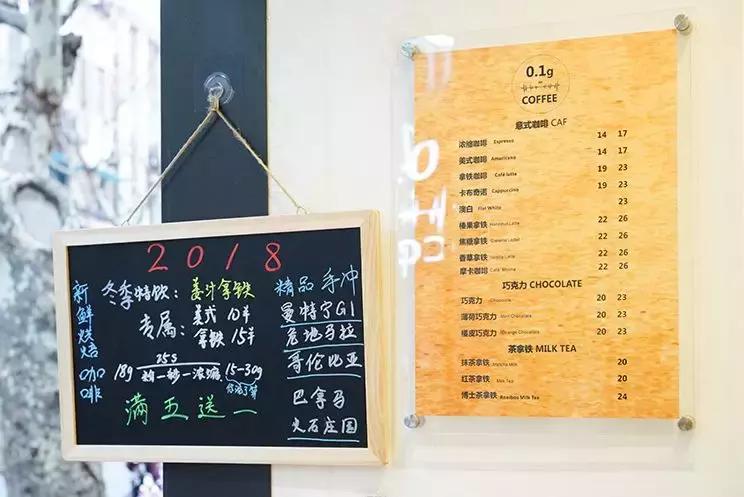 2018
新鲜烘焙咖啡
冬季特饮：姜汁拿铁
专属：美式 10半
拿铁 15半
25s
18g 粉一秒一浓缩 15-30g
满五送一
精品 手冲
曼特宁G1
危地马拉
哥伦比亚
巴拿马
火石庄园
0.1g
COFFEE
意式咖啡 CAF
浓缩咖啡 Espresso 14 17
美式咖啡 Americano 14 17
拿铁咖啡 Café latte 19 23
卡布奇诺 Cappuccino 19 23
澳白 Flat White 23
榛果拿铁 Hazelnut Latte 22 26
焦糖拿铁 Caramel Latte 22 26
香草拿铁 Vanilla Latte 22 26
摩卡咖啡 Café Mocha 22 26
巧克力 CHOCOLATE
巧克力 Chocolate 20 23
薄荷巧克力 Mint Chocolate 20 23
橘皮巧克力 Orange Chocolate 20 23
茶拿铁 MILK TEA
抹茶拿铁 Matcha Milk 20
红茶拿铁 Milk Tea 20
博士茶拿铁 Rooibos Milk Tea 24